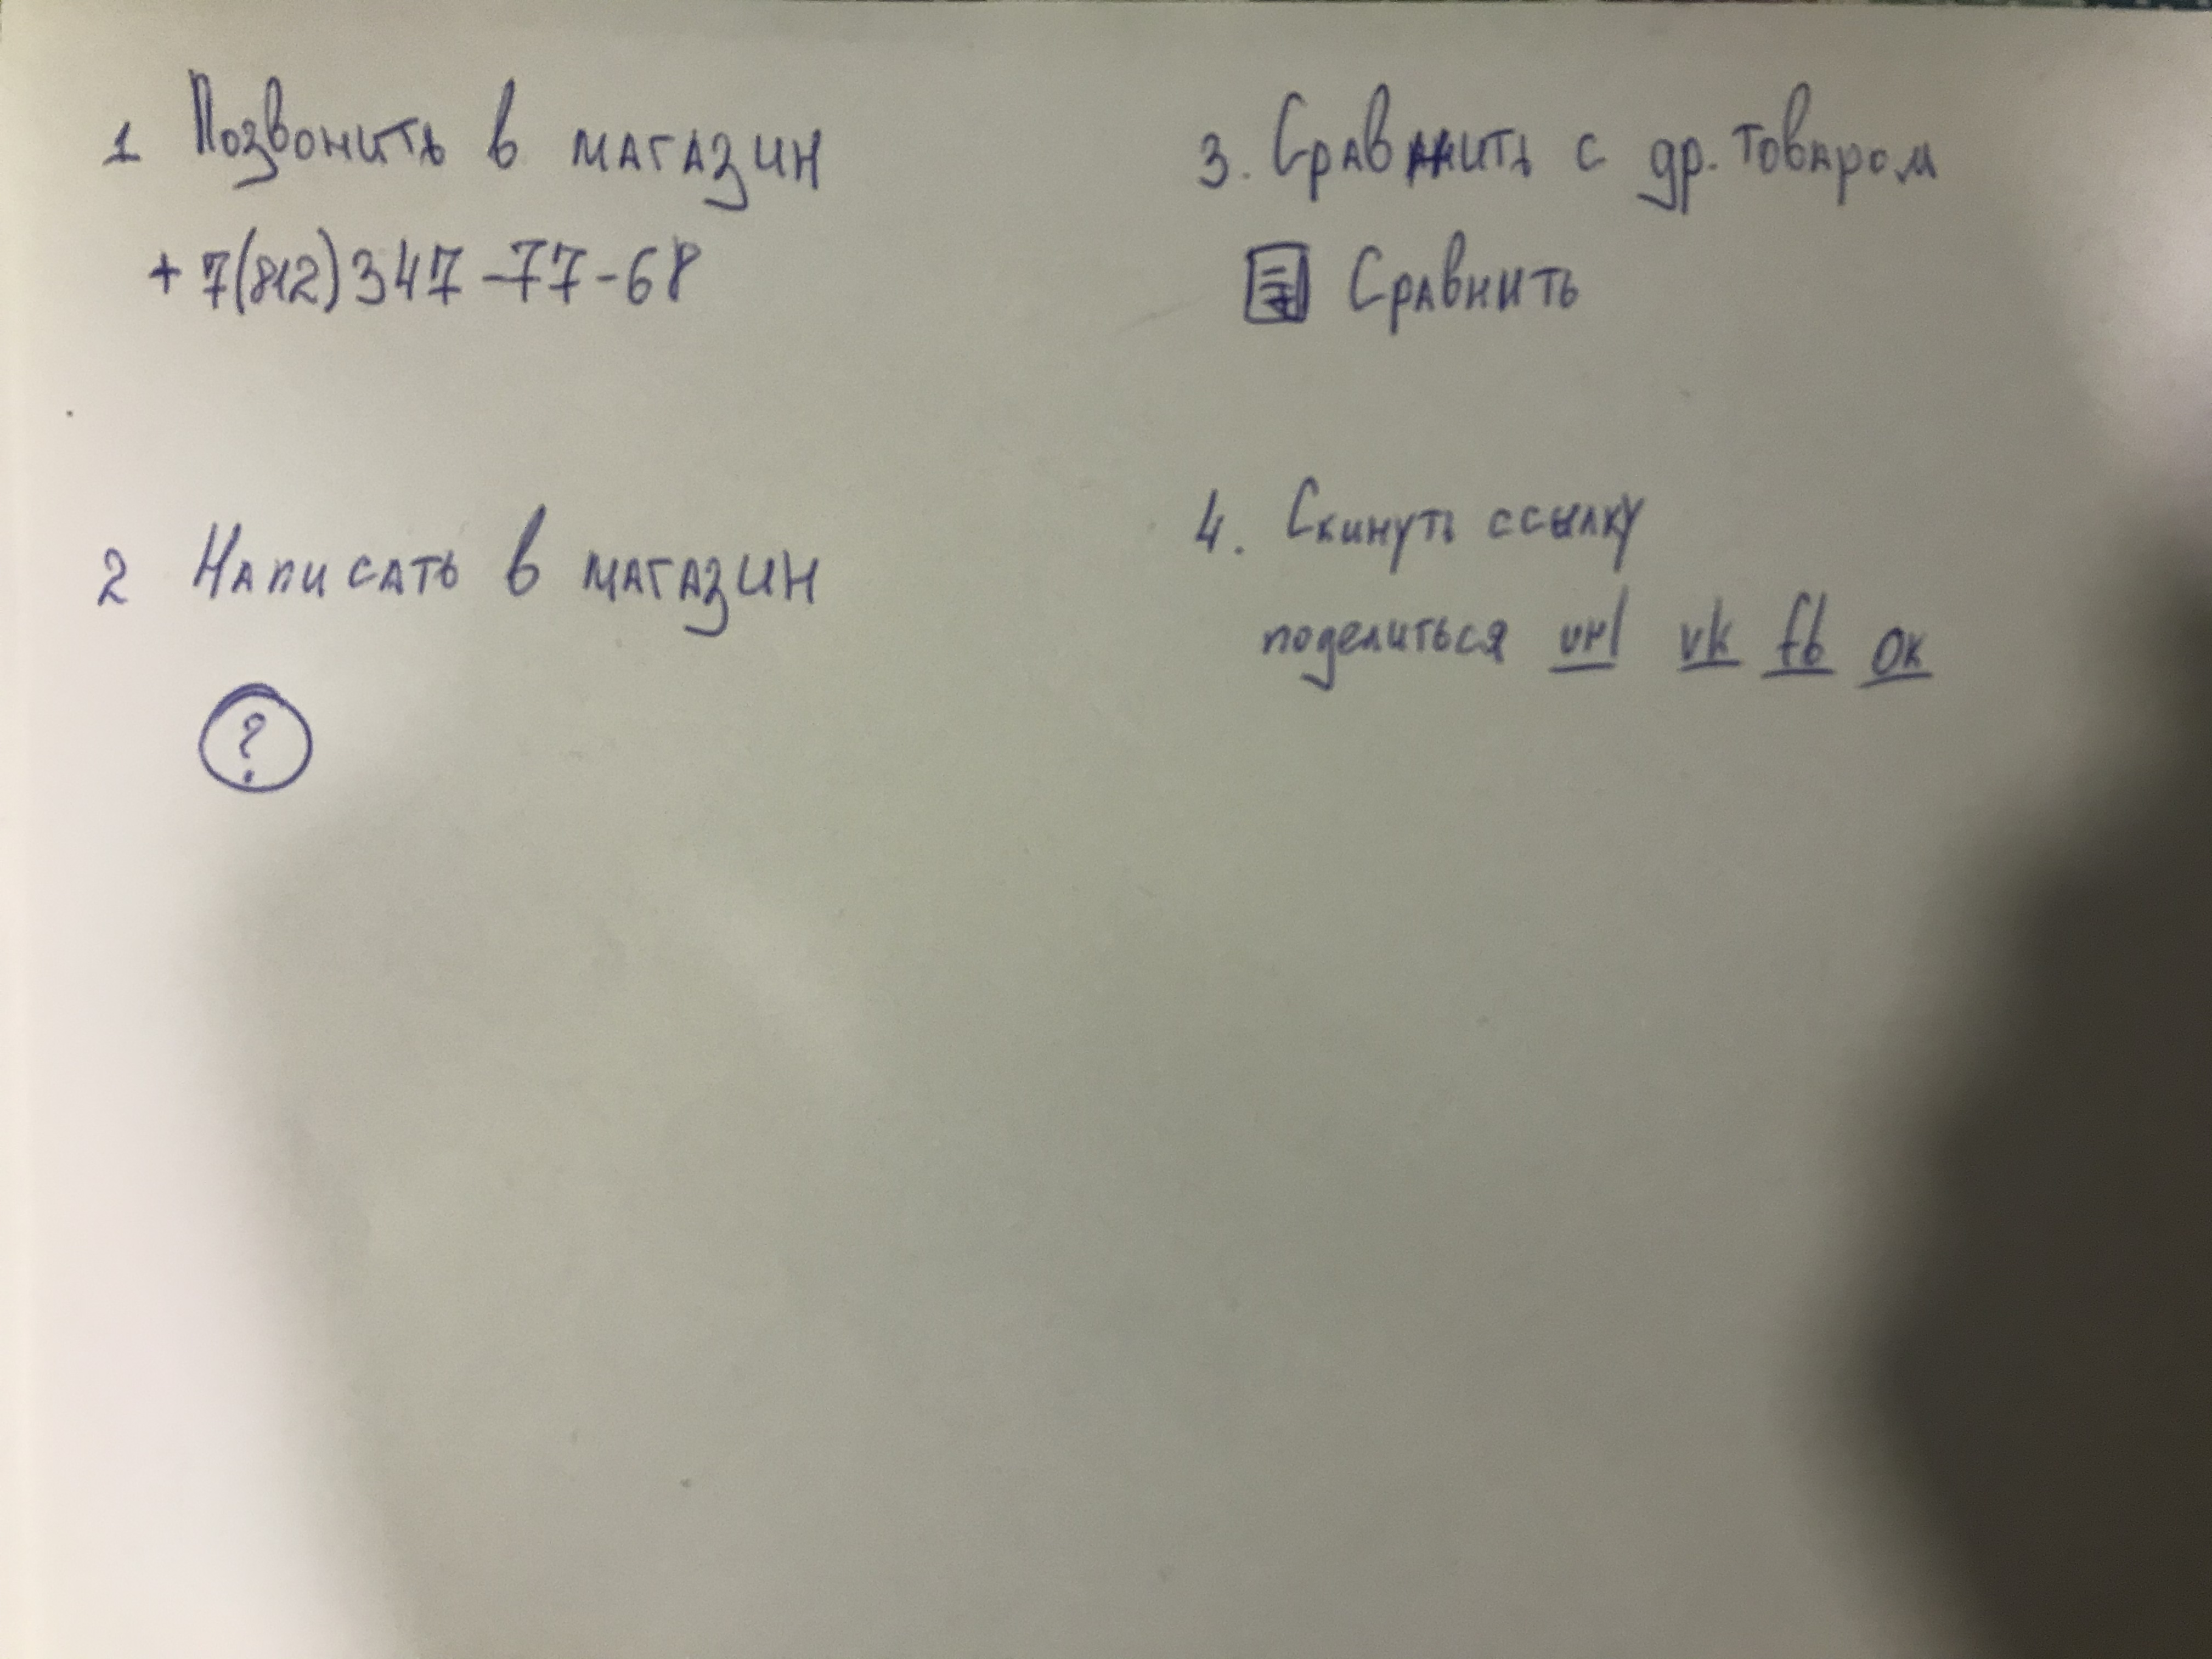 1 Позвонить в магазин
+7(812)347-77-68
2 Написать в магазин
?
3. Сравнить с др. товаром
Сравнить
4. Скинуть ссылку
поделиться url vk fb ок